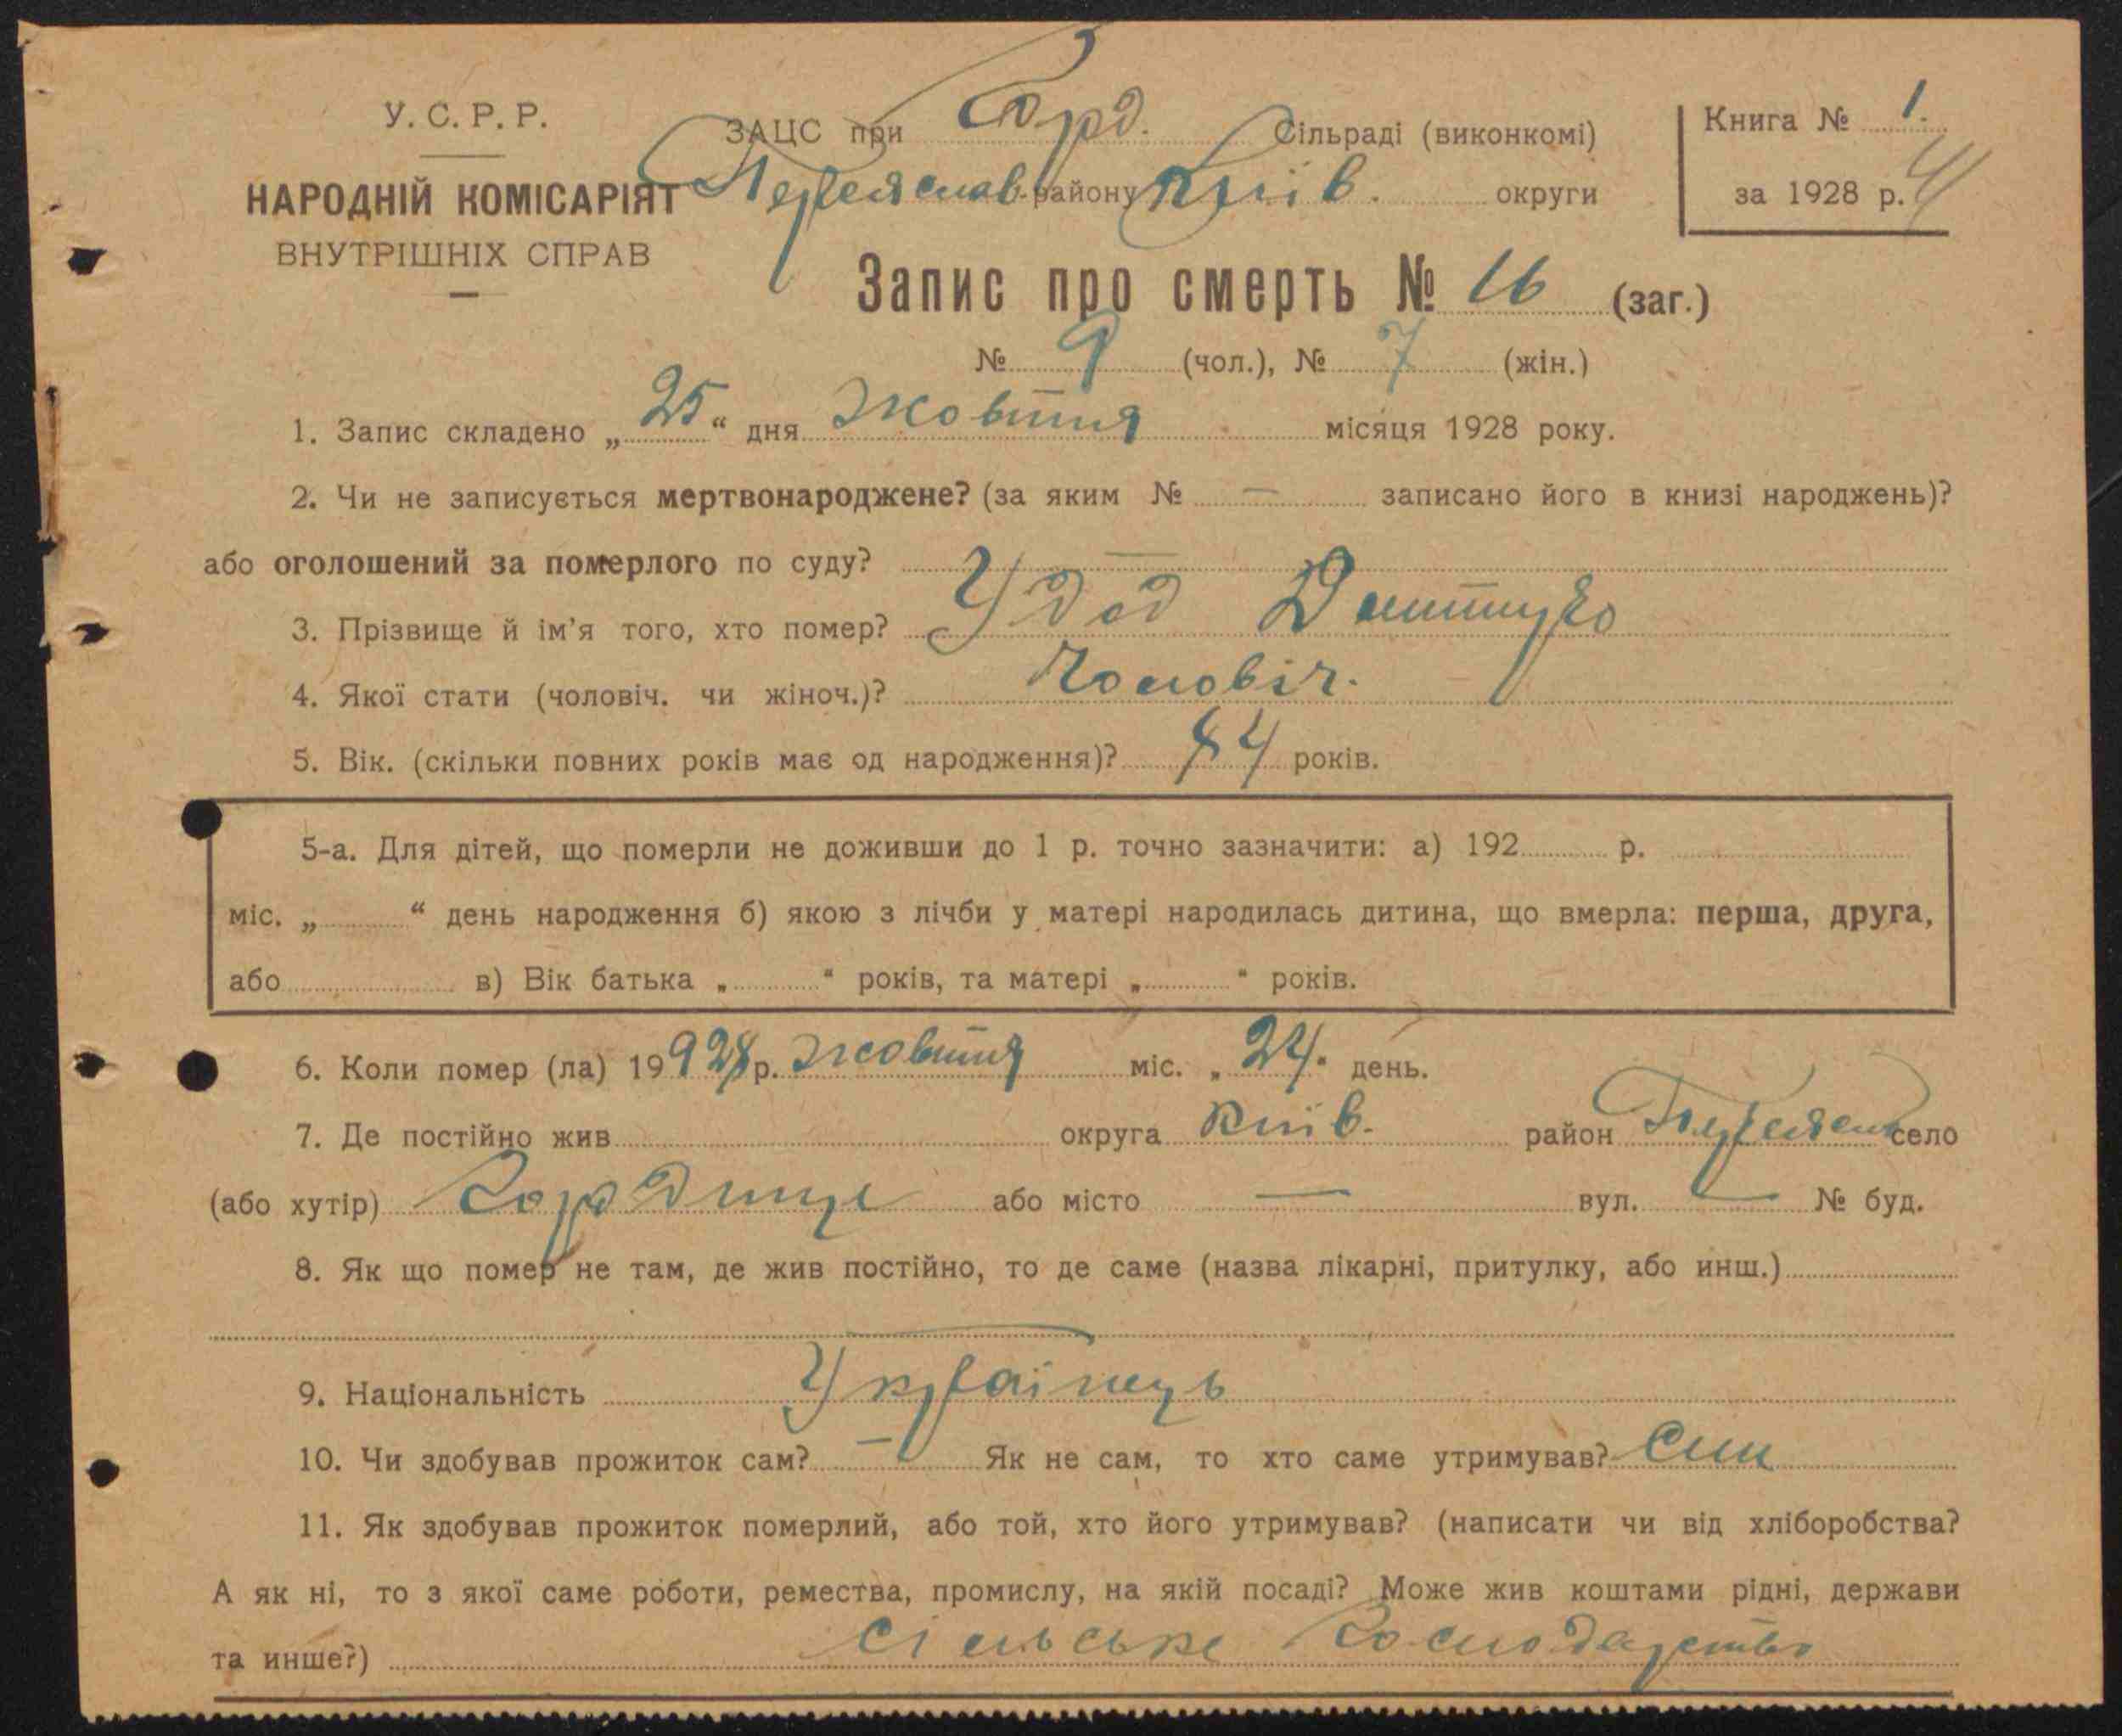 У.С.Р.Р.
НАРОДНІЙ КОМІСАРІЯТ
ВНУТРІШНІХ СПРАВ
ЗАЦС при Горд. Сільраді (виконкомі)
Переяслав. району Київ. округи
Книга № 1.
за 1928 р.
Запис про смерть № 16 (заг.)
№ 9 (чол.), № 7 (жін.)
1. Запис складено „25“ дня Жовтня місяця 1928 року.
2. Чи не записується мертвонароджене? (за яким № — записано його в книзі народжень)?
або оголошений за померлого по суду? —
3. Прізвище й ім'я того, хто помер? Удод Дмитро
4. Якої стати (чоловіч. чи жіноч.)? Чоловіч.
5. Вік. (скільки повних років має од народження)? 84 років.
5-а. Для дітей, що померли не доживши до 1 р. точно зазначити: а) 192 р.
міс. „ “ день народження б) якою з лічби у матері народилась дитина, що вмерла: перша, друга,
або в) Вік батька „ “ років, та матері „ “ років.
6. Коли помер (ла) 19928 р. Жовтня міс. „24“ день.
7. Де постійно жив округа Київ. район Переясл село
(або хутір) Гордищі або місто — вул. — № буд.
8. Як що помер не там, де жив постійно, то де саме (назва лікарні, притулку, або инш.)
—
9. Національність Українець
10. Чи здобував прожиток сам? — Як не сам, то хто саме утримував? Син
11. Як здобував прожиток померлий, або той, хто його утримував? (написати чи від хліборобства?
А як ні, то з якої саме роботи, ремества, промислу, на якій посаді? Може жив коштами рідні, держави
та инше?) сільське господарство